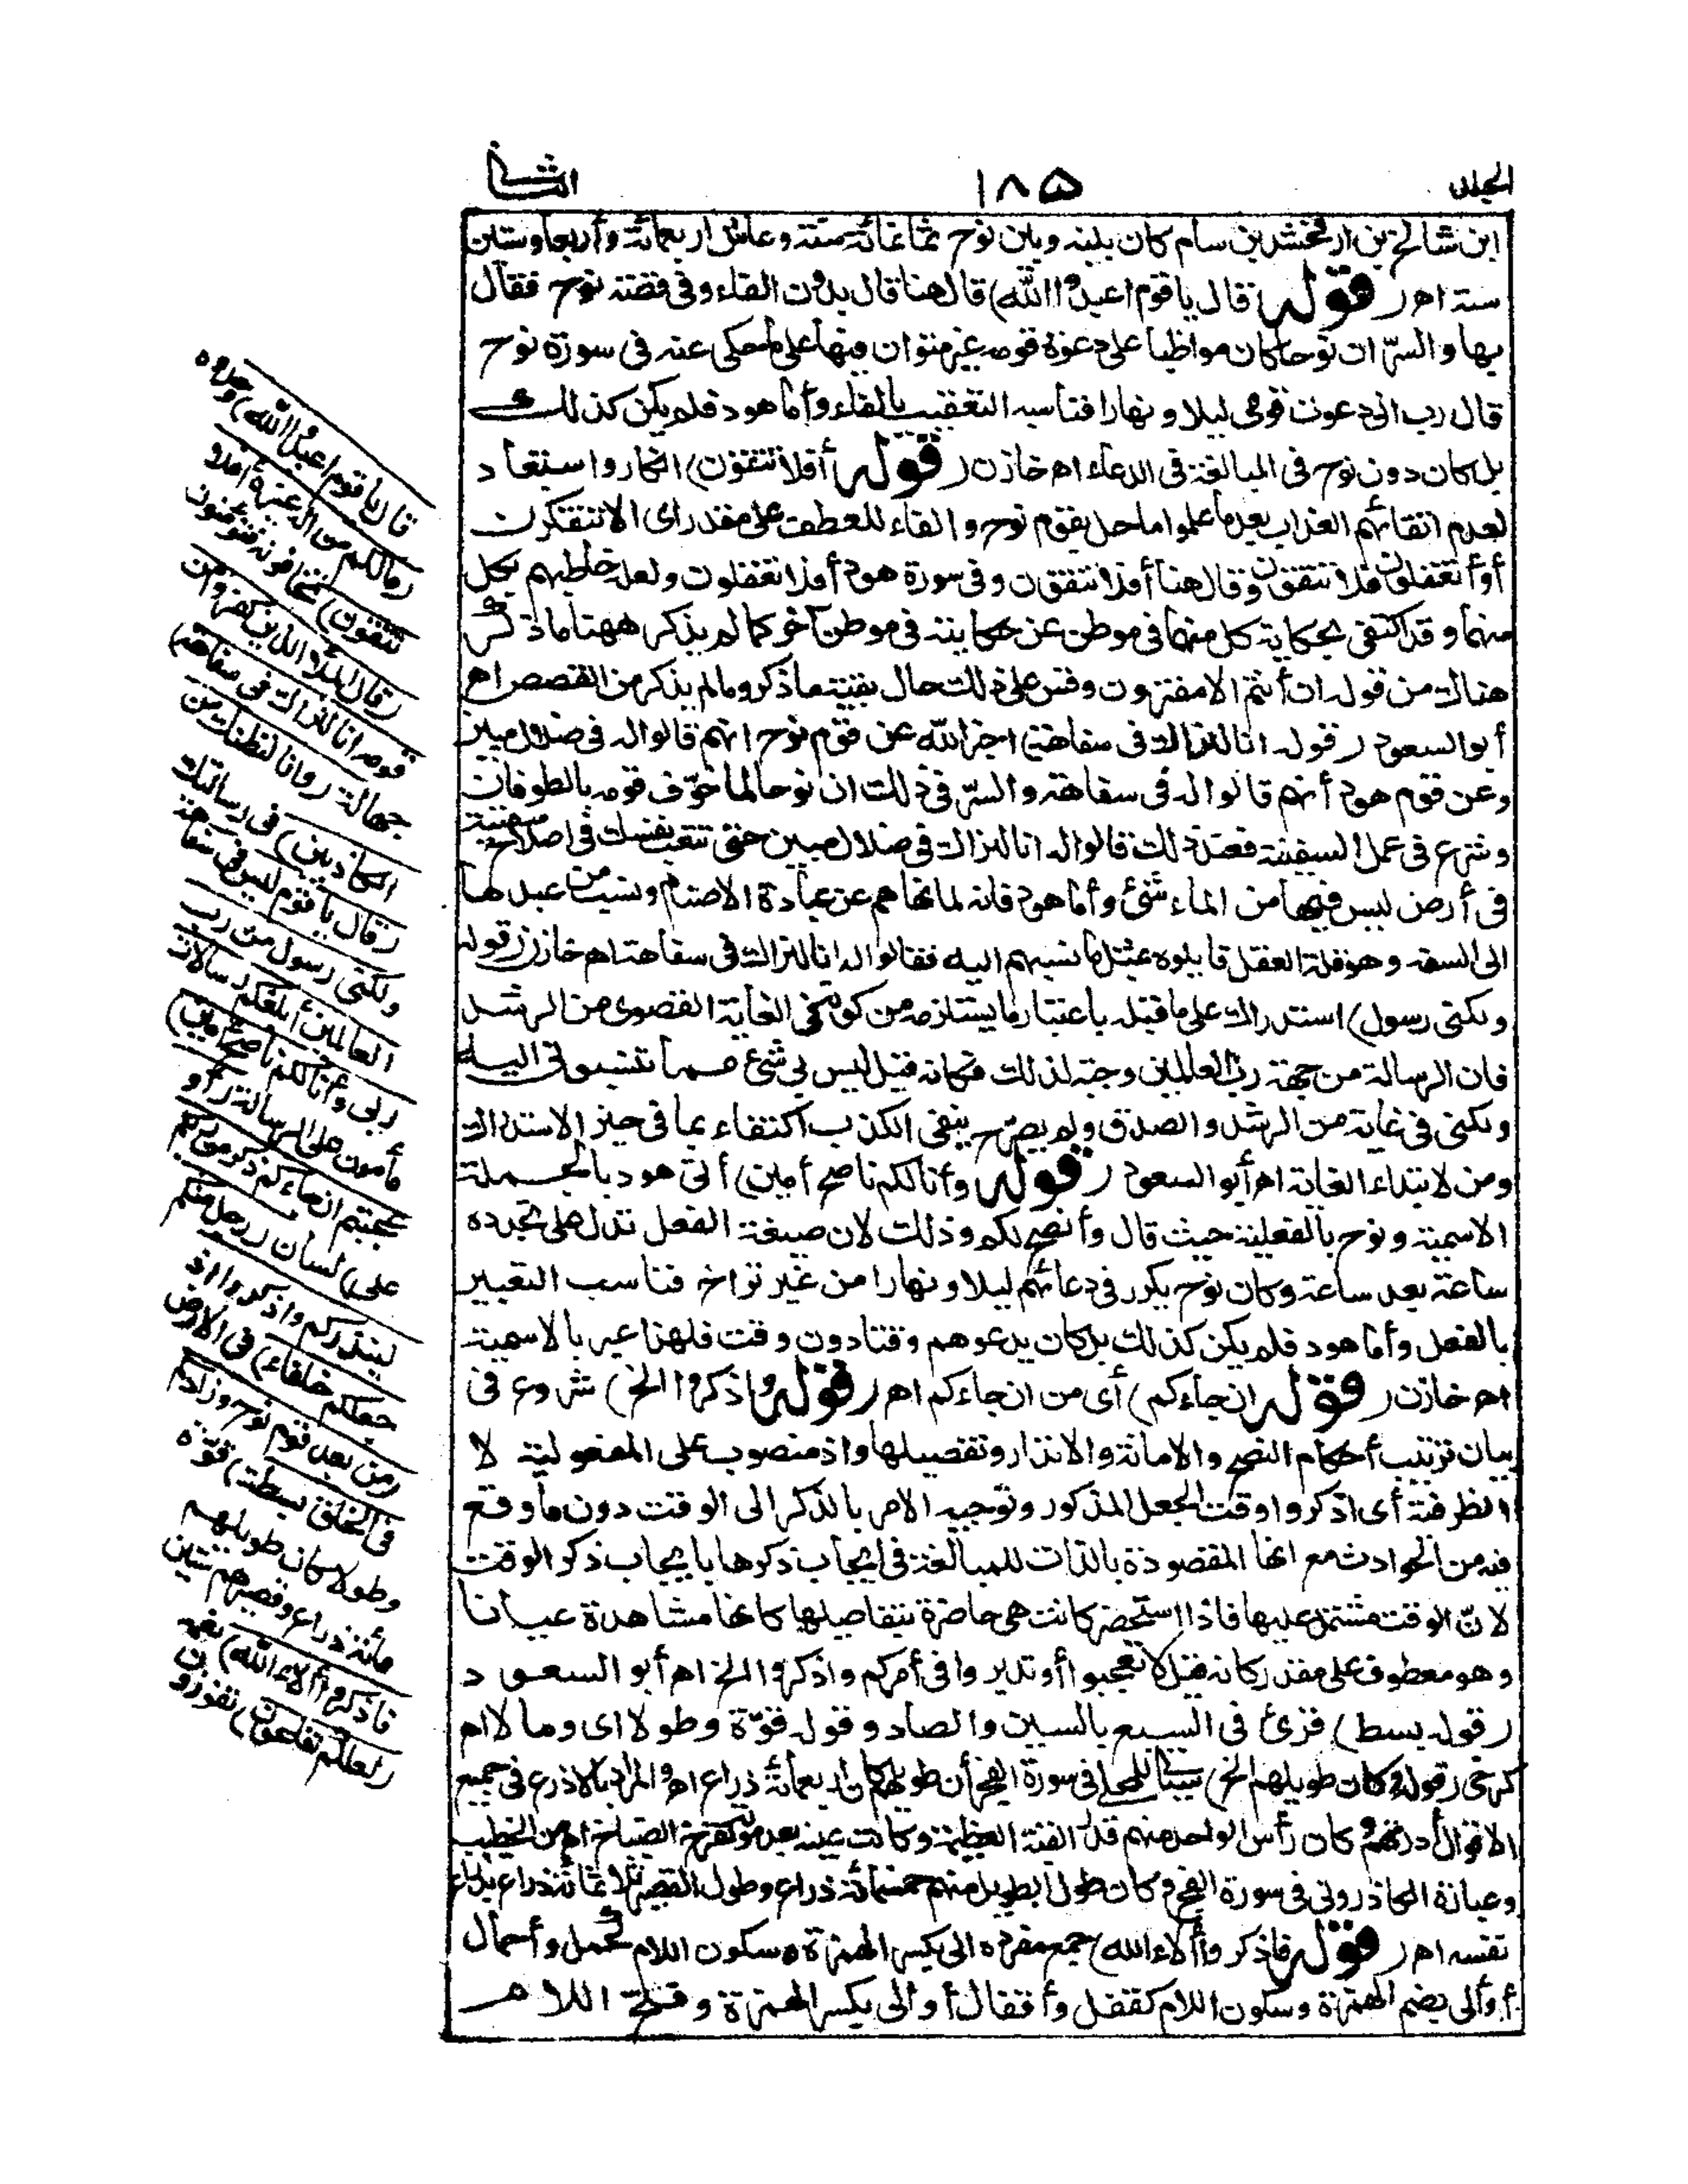 الجلد
١٨٥
الثانى
ابن شالخ بن ارفخشذ بن سام كان بينه وبين نوح ثمانمائة سنة وعاش اربعمائة وأربعا وستين
سنة اهـ (قوله قال يا قوم اعبدوا الله) قال هنا قال بدون الفاء وفى قصة نوح فقال
بها والسرّ ان نوحا كان مواظبا على دعوة قومه غير متوان فيها على ما حكى عنه فى سورة نوح
قال رب انى دعوت قومى ليلا ونهارا فناسبه التعقيب بالفاء وأما هود فلم يكن كذلك
بل كان دون نوح فى المبالغة فى الدعاء اهـ خازن (قوله أفلا تتقون) انكار واستبعاد
لعدم اتقائهم العذاب بعد ما علموا ما حل بقوم نوح والفاء للعطف على مقدر اى الا تتفكرون
أو أتغفلون فلا تتقون وقال هنا أفلا تتقون وفى سورة هود أفلا تعقلون ولعله خاطبهم بكل
منهما وقد اكتفى بحكاية كل منهما فى موطن عن حكايته فى موطن آخر كما لم يذكر ههنا ما ذكر
هناك من قوله ان أنتم الا مفترون وقس على ذلك حال بقية ما ذكر وما لم يذكر من القصص اهـ
أبو السعود (قوله انا لنراك فى سفاهة) اخبر الله عن قوم نوح انهم قالوا له فى ضلال مبين
وعن قوم هود أنهم قالوا له فى سفاهة والسرّ فى ذلك ان نوحا لما خوّف قومه بالطوفان
وشرع فى عمل السفينة فعند ذلك قالوا له انا لنراك فى ضلال مبين حتى تتعب نفسك فى اصلاح سفينة
فى أرض ليس فيها من الماء شئ وأما هود فانه لما نهاهم عن عبادة الاصنام ونسب من عبدها
الى السفه وهو قلة العقل قابلوه بمثل ما نسبهم اليه فقالوا له انا لنراك فى سفاهة اهـ خازن (قوله
ولكنى رسول) استدراك على ما قبله باعتبار ما يستلزمه من كونه فى الغاية القصوى من الرشد
فان الرسالة من جهة رب العالمين وجبة لذلك فكأنه قيل ليس بى شئ مما تنسبونى اليه
ولكنى فى غاية من الرشد والصدق ولم يصرّح بنفى الكذب اكتفاء بما فى حيز الاستدراك
ومن لابتداء الغاية اهـ أبو السعود (قوله وأنا لكم ناصح أمين) أتى هود بالجملة
الاسمية ونوح بالفعلية حيث قال وأنصح لكم وذلك لان صيغة الفعل تدل على تجدده
ساعة بعد ساعة وكان نوح يكرر فى دعائهم ليلا ونهارا من غير تراخ فناسب التعبير
بالفعل وأما هود فلم يكن كذلك بل كان يدعوهم وقتا دون وقت فلهذا عبر بالاسمية
اهـ خازن (قوله ان جاءكم) أى من ان جاءكم اهـ (قوله واذكروا الخ) شروع فى
بيان ترتيب أحكام النصح والامانة والانذار وتفصيلها واذ منصوب على المفعولية لا
الظرفية أى اذكروا وقت الجعل المذكور وتوجيه الامر بالذكر الى الوقت دون ما وقع
فيه من الحوادث مع انها المقصودة بالذات للمبالغة فى ايجاب ذكرها بايجاب ذكر الوقت
لانّ الوقت مشتمل عليها فاذا استحضر كانت هى حاضرة بتفاصيلها كانها مشاهدة عيانا
وهو معطوف على مقدر كانه قيل لا تعجبوا أو تدبروا فى أمركم واذكروا الخ اهـ أبو السعود
(قوله بسطة) قرئ فى السبع بالسين والصاد وقوله قوّة وطولا اى وما لا اهـ
كرخى (قوله وكان طويلهم الخ) للمحلى فى سورة الفجر أن طويلهم كان اربعمائة ذراع اهـ والمراد بالاذرع فى جميع
الاقوال أذرعهم وكان رأس الواحد منهم قدر القبة العظيمة وكانت عينه بعد موته تفرخ فيها الضباع اهـ من الخطيب
وعبارة الكاذرونى فى سورة الفجر وكان طول الطويل منهم خمسمائة ذراع وطول القصير ثلاثمائة ذراع بذراع
نفسه اهـ (قوله فاذكروا آلاء الله) جمع مفرده الى بكسر الهمزة وسكون اللام كحمل وأحمال
أو ألى بضم الهمزة وسكون اللام كقفل وأقفال أو الى بكسر الهمزة وفتح اللام
قال يا قوم اعبدوا الله) وحدوه
(مالكم من اله غيره أفلا
تتقون) تخافونه فتؤمنون
(قال الملأ الذين كفروا من
قومه انا لنراك فى سفاهة)
جهالة (وانا لنظنك من
الكاذبين) فى رسالتك
(قال يا قوم ليس بى سفاهة
ولكنى رسول من رب
العالمين أبلغكم رسالات
ربى وأنا لكم ناصح أمين)
مأمون على الرسالة (أو
عجبتم ان جاءكم ذكر من ربكم
على) لسان (رجل منكم
لينذركم واذكروا اذ
جعلكم خلفاء) فى الارض
(من بعد قوم نوح وزادكم
فى الخلق بسطة) قوّة
وطولا وكان طويلهم
مائة ذراع وقصيرهم ستين
فاذكروا آلاء الله) نعمه
(لعلكم تفلحون) تفوزون